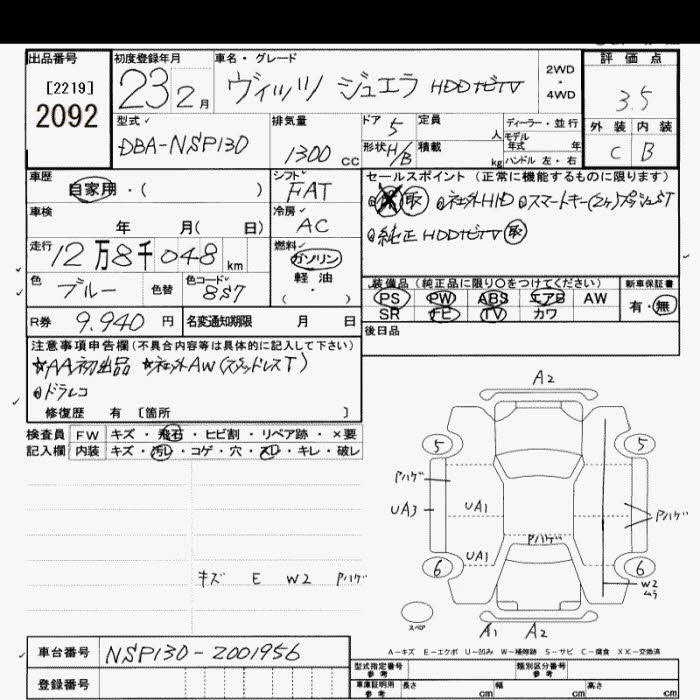 出品番号 初度登録年月 車名・グレード 評価点
[2219] 2092
23 2月
ヴィッツ ジュエラ HDDナビTV
2WD・4WD
3.5
型式 DBA-NSP130
排気量 1300 cc
ドア 5 定員 人
形状 H/B 積載 kg
ディーラー・並行
モデル年式 年
ハンドル 左・右
外装 内装
C B
車歴 自家用・( )
シフト FAT
車検 年 月( 日)
冷房 AC
走行 12万8千048 km
燃料 ガソリン
軽油
(・)
色 ブルー 色替 色コード 8S7
R券 9.940 円 名変通知期限 月 日
セールスポイント(正常に機能するものに限ります)
取 社外HID スマートキー(2ヶ)プッシュST
純正HDDナビTV 取
装備品(純正品に限り○をつけてください) 新車保証書
PS PW ABS エアB AW 有・無
SR TV カワ
後日品
注意事項申告欄(不具合内容等は具体的に記入して下さい)
☆AA初出品 ☆社外AW(スタッドレスT)
ドラレコ
修復歴 有 〔箇所 〕
検査員 FW キズ・飛石・ヒビ割・リペア跡・×要
記入欄 内装 キズ・汚レ・コゲ・穴・スレ・キレ・破レ
キズ E W2 Pハゲ
A2
5 5
Pハゲ
UA3 UA1 Pハゲ
Pハゲ
UA1
6 6
W2
ムラ
スペア
A1 A2
A-キズ E-エクボ U-凹み W-補修跡 S-サビ C-腐食 XX-交換済
車台番号 NSP130-2001956
登録番号
型式指定番号 参考 類別区分番号 参考
車庫証明用 参考 長さ cm 幅 cm 高さ cm